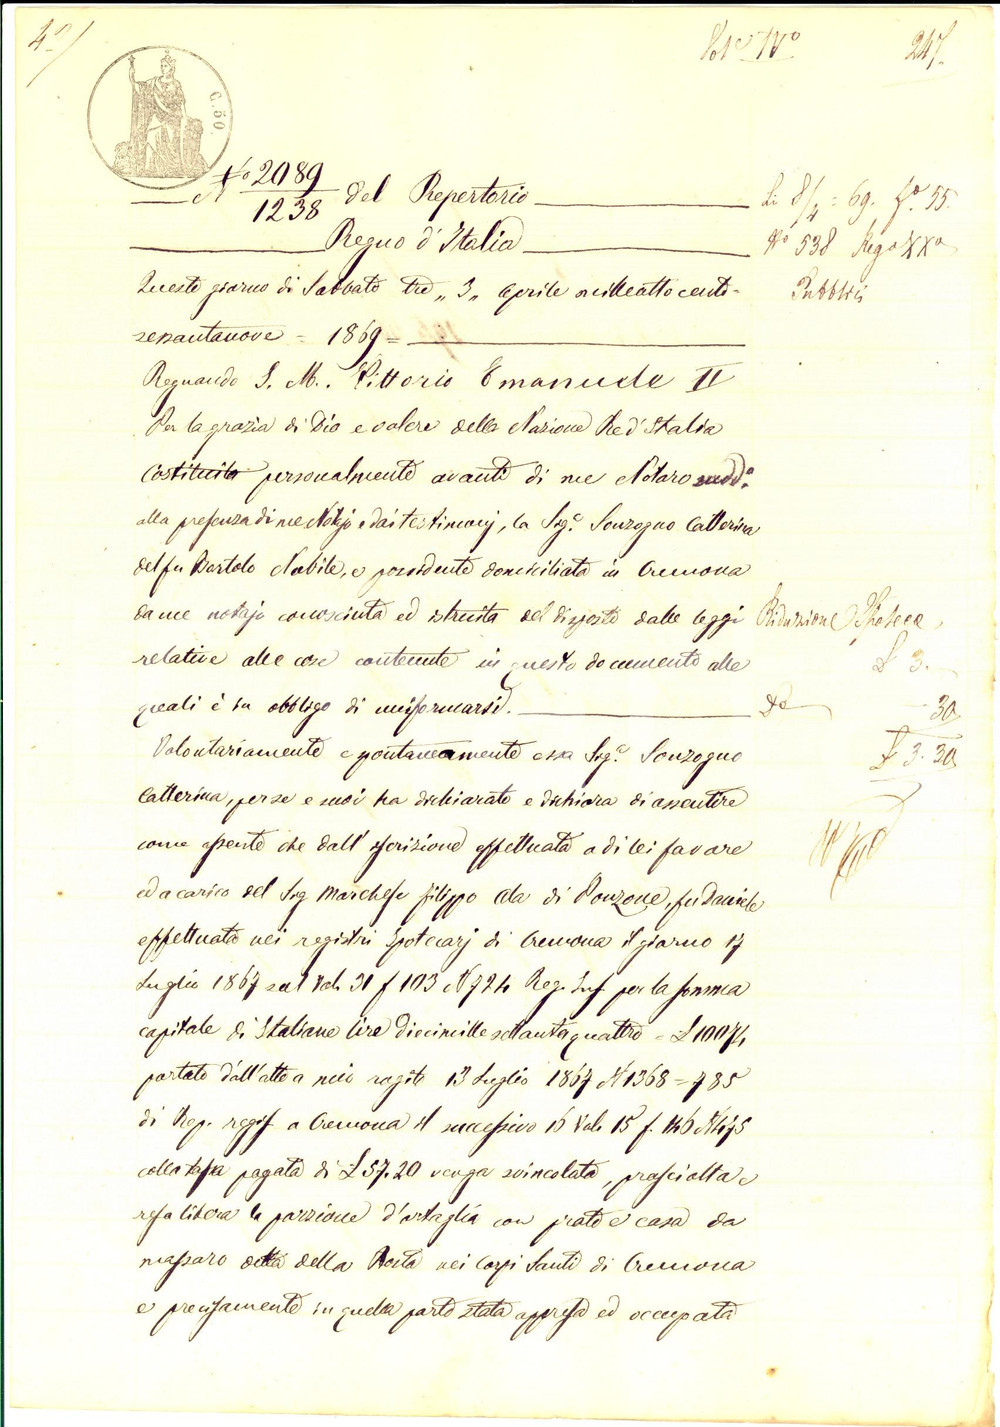 4°/
Vol° IV°
247.
C. 50.
N° 2089/1238 del Repertorio
Li 8/4 = 69. f° 55.
Regno d'Italia
N° 538 Reg°
Pubblici
Questo giorno di Sabbato tre „ 3 „ Aprile milleottocento-
sessantanove = 1869 =
Regnando S. M. Vittorio Emanuele II
Per la grazia di Dio e volere della Nazione Re d'Italia
Costituita personalmente avanti di me Notaro sudd°
alla presenza di me Notajo e dai testimonj, la Sig.ª Sonzogno Catterina
del fu Bortolo Nobile, e possidente domiciliata in Cremona
da me notajo conosciuta ed istruita del disposto dalle leggi
Riduzione Ipoteca
relative alle cose contenute in questo documento alle
£ 3.
quali è in obbligo di uniformarsi.
D°
30
Volontariamente e spontaneamente essa Sig.ª Sonzogno
£ 3. 30
Catterina, per se e suoi ha dichiarato e dichiara di assentire
come assente che dall' iscrizione effettuata a di lei favore
ed a carico del Sig Marchese Filippo Ala di Ponzone, fu Daniele
effettuata nei registri Ipotecarj di Cremona il giorno 17
Luglio 1867 sul Vol. 31 f 103 N 724 Reg. Ins per la somma
capitale di Italiane lire diecimille settantaquattro = £ 10074
portato dall'atto a mio rogito 13 Luglio 1867 N 1368 = 785
di Rep. regis a Cremona il successivo 16 Vol. 15 f. 146 N 475
colla tassa pagata di £ 57.20 venga svincolata, prosciolta e
resa libera la porzione d'ortaglia con prato e casa da
massaro detta della Posta nei Corpi Santi di Cremona
e precisamente in quella parte stata appresa ed occupata